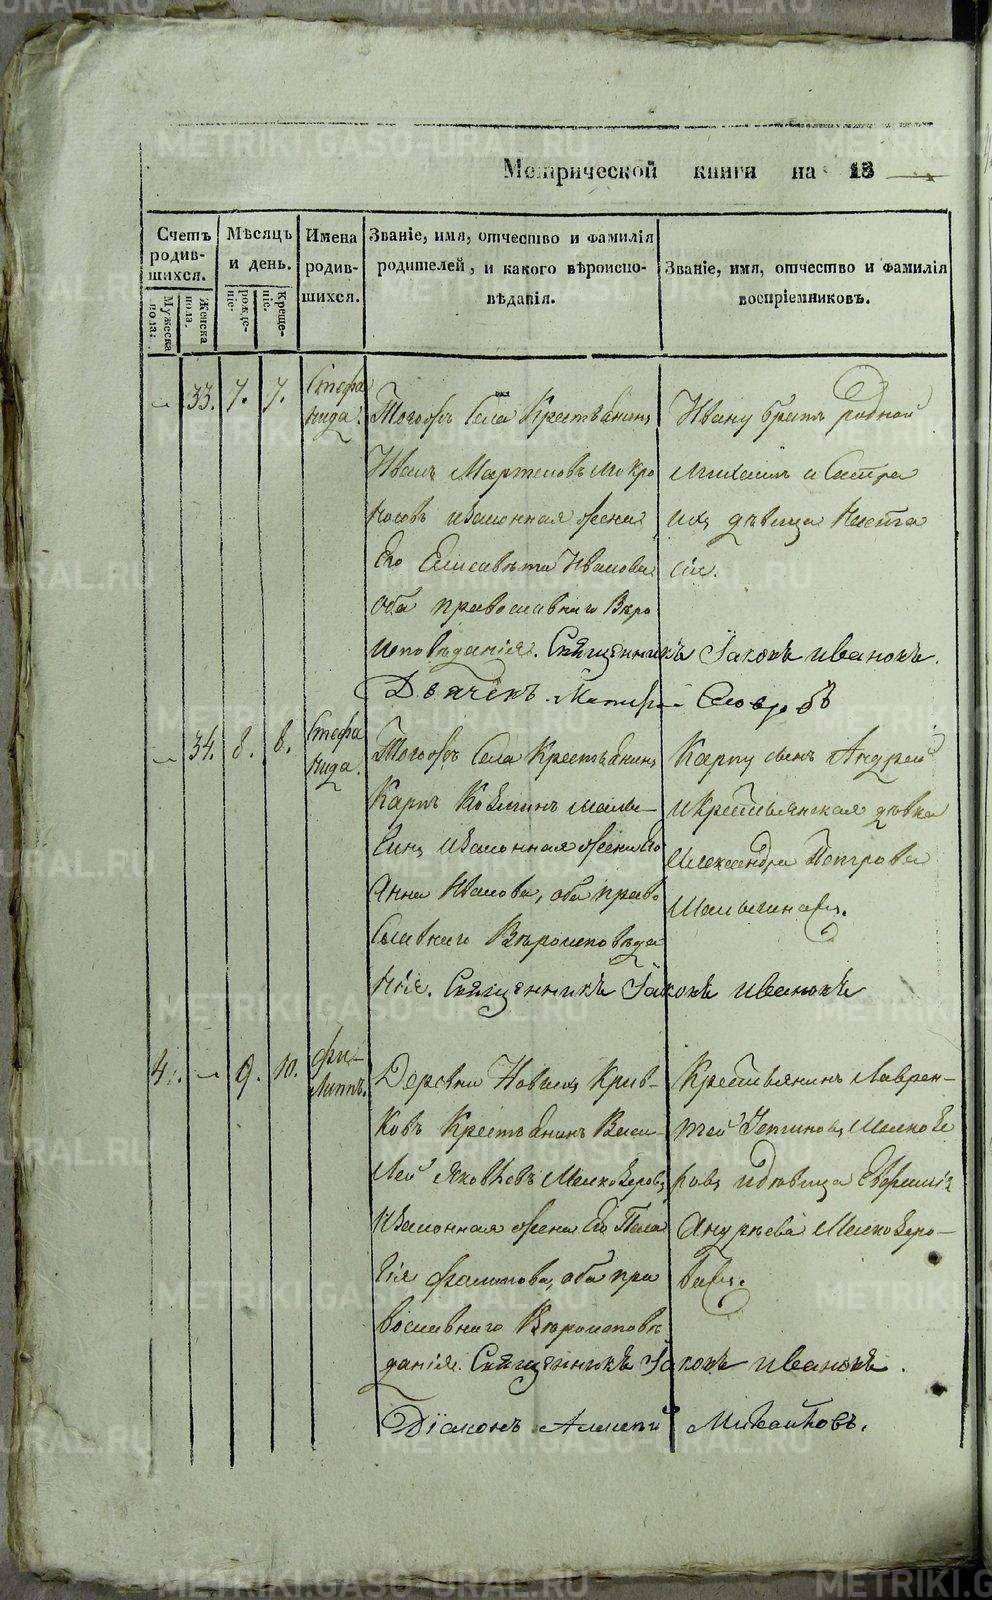 Метрической книги на 18
Счетъ родившихся.
Мужеска пола.
Женска пола.
Мѣсяцъ и день.
рожденіе.
крещеніе.
Имена родившихся.
Званіе, имя, отчество и фамилія
родителей, и какого вѣроиспо-
вѣданія.
Званіе, имя, отчество и фамилія
воспріемниковъ.
33. 7. 7. Стефа
нида.
Тогожъ Села Крестьянинъ
Иванъ Мартемовъ Мокро
носовъ изаконная жена
Его Елисавета Иванова
оба православнаго Вѣро
исповѣданія. Священникъ Іаковъ Ивановъ.
Дьячекъ
Ивану братъ родной
Михаилъ и Сестра
ихъ дѣвица
34. 8. 8. Стефа
нида.
Тогожъ Села Крестьянинъ
Карпъ Козминъ Шалы-
гинъ изаконная жена его
Анна Иванова, оба право
славнаго Вѣроисповѣда
нія. Священникъ Іаковъ Ивановъ
Карпу сынъ Андрей
и Крестьянская дѣвка
Александра Петрова
Шалыгинавъ.
41. 9. 10. Фи-
липпъ.
Деревни Новыхъ Крив-
ковъ Крестьянинъ Васи-
лей Яковлевъ Мелкозеровъ
изаконная жена Его Пела
гія Филипова, оба пра
вославнаго Вѣроисповѣ
данія. Священникъ Іаковъ Ивановъ.
Діаконъ Алексѣй Михайловъ.
Крестьянинъ Лаврен-
тей Устиновъ Мелкозе
ровъ идовица Евгенія
Андреева Мелкозеро-
вавъ.
METRIKI.GASO-URAL.RU